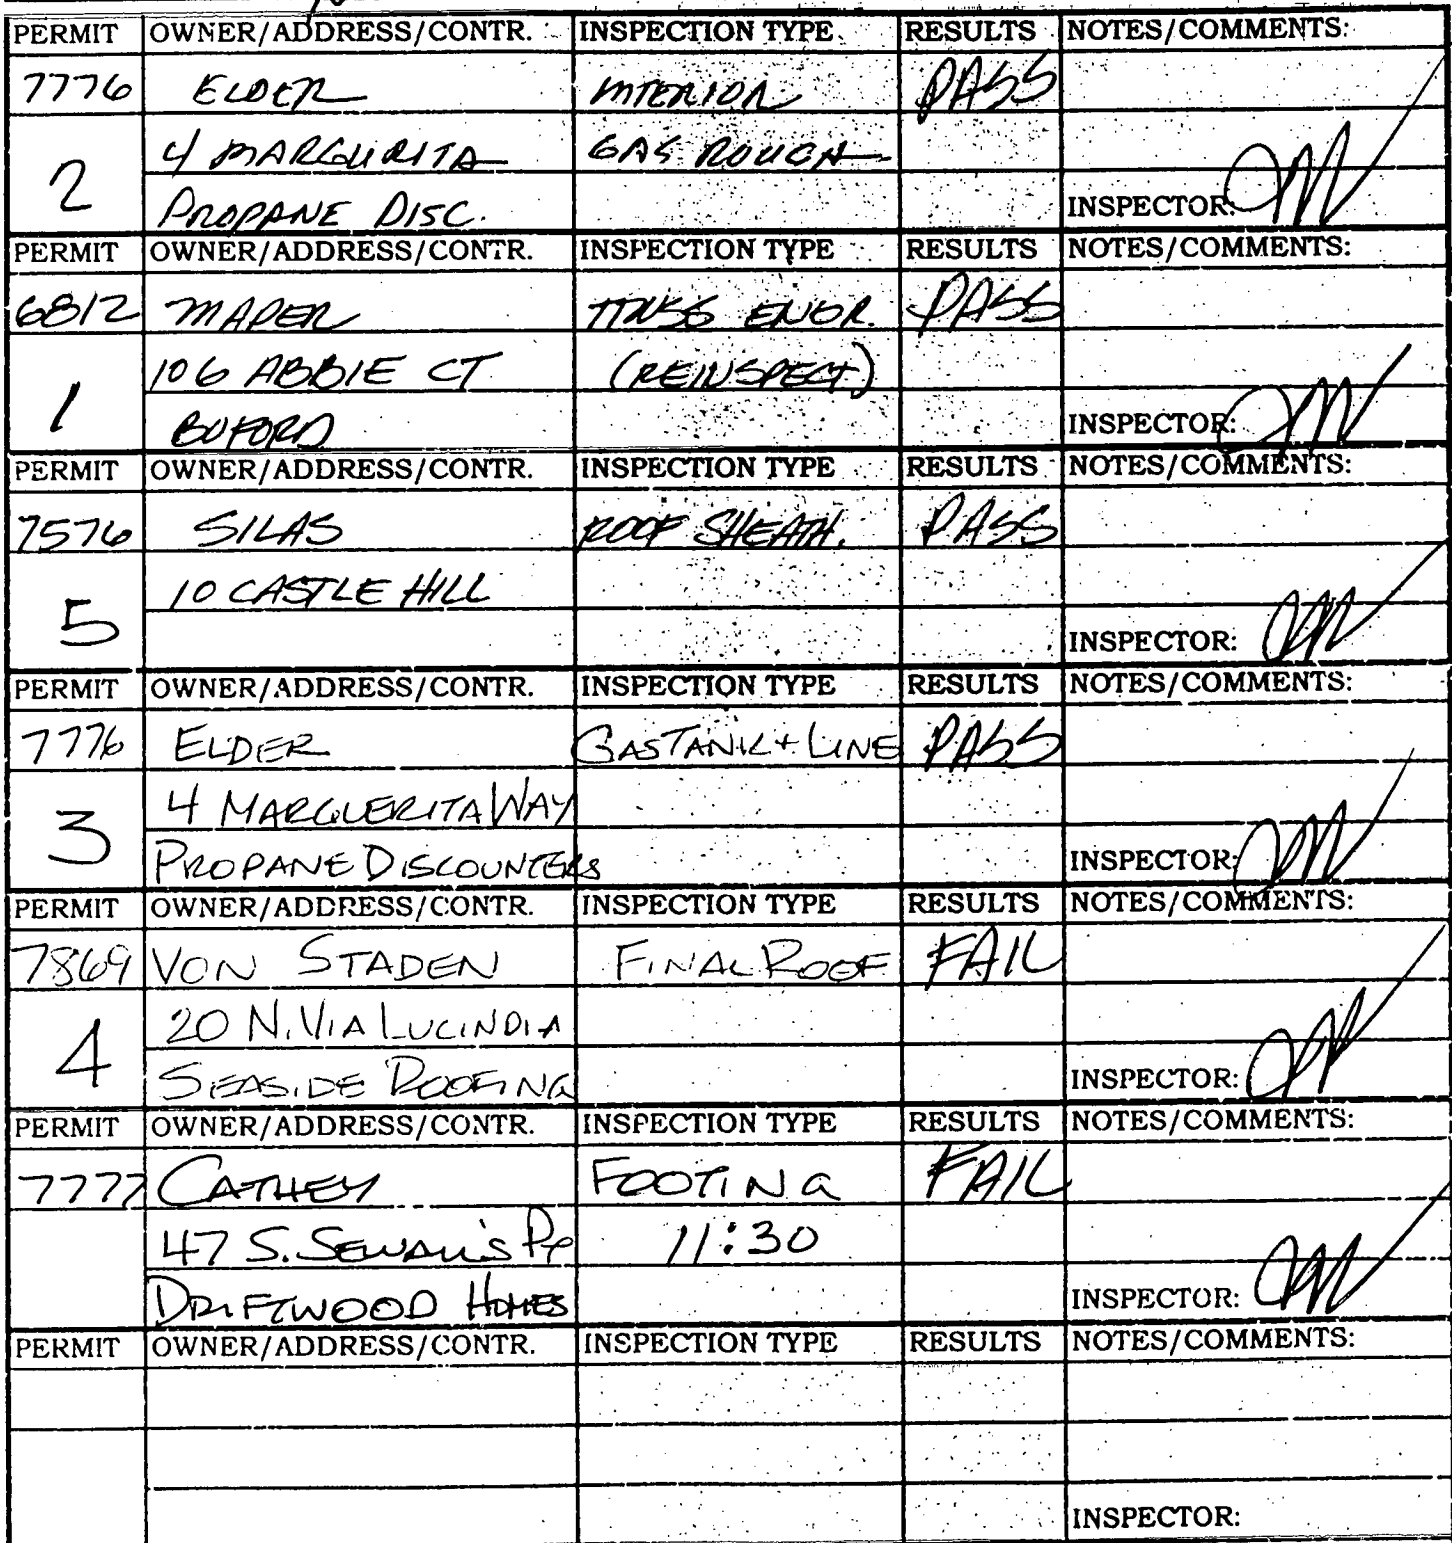 PERMIT OWNER/ADDRESS/CONTR. INSPECTION TYPE RESULTS NOTES/COMMENTS:
7776 ELDER INTERIOR PASS
2 4 MARGURITA GAS ROUGH
PROPANE DISC. INSPECTOR:
PERMIT OWNER/ADDRESS/CONTR. INSPECTION TYPE RESULTS NOTES/COMMENTS:
6812 MADER ENGR. PASS
1 106 ABBIE CT (REINSPECT)
BUFORD INSPECTOR:
PERMIT OWNER/ADDRESS/CONTR. INSPECTION TYPE RESULTS NOTES/COMMENTS:
7576 SILAS ROOF SHEATH. PASS
5 10 CASTLE HILL
INSPECTOR:
PERMIT OWNER/ADDRESS/CONTR. INSPECTION TYPE RESULTS NOTES/COMMENTS:
7776 ELDER GAS TANK + LINE PASS
3 4 MARGUERITA WAY
PROPANE DISCOUNTERS INSPECTOR:
PERMIT OWNER/ADDRESS/CONTR. INSPECTION TYPE RESULTS NOTES/COMMENTS:
7869 VON STADEN FINAL ROOF FAIL
4 20 N. VIA LUCINDIA
SEASIDE ROOFING INSPECTOR:
PERMIT OWNER/ADDRESS/CONTR. INSPECTION TYPE RESULTS NOTES/COMMENTS:
7777 CATHEY FOOTING FAIL
47 S. SEWALL'S PT 11:30
DRIFTWOOD HOMES INSPECTOR:
PERMIT OWNER/ADDRESS/CONTR. INSPECTION TYPE RESULTS NOTES/COMMENTS:
INSPECTOR: